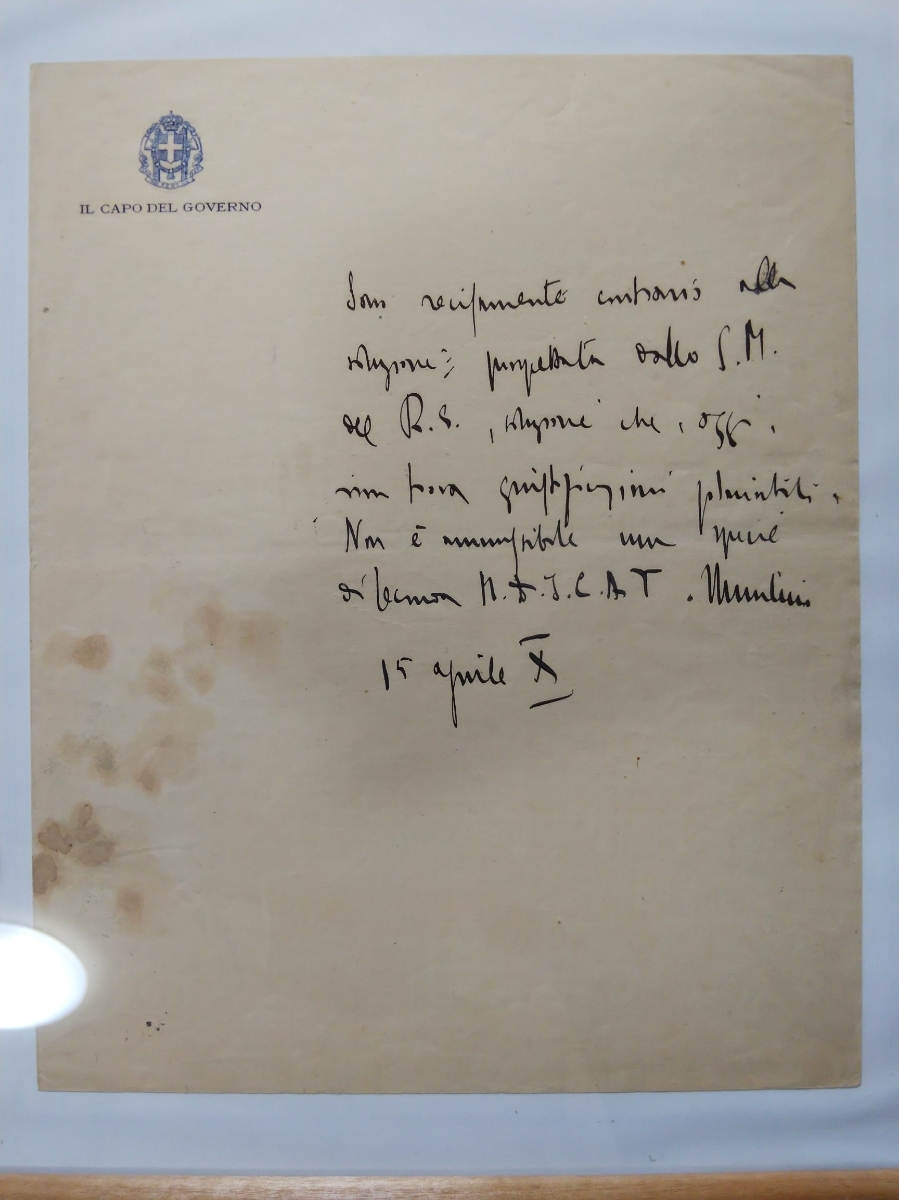 IL CAPO DEL GOVERNO
Sono recisamente contrario alla
soluzione prospettata dallo S.M.
del R.E., soluzione che, oggi,
non trova giustificazioni plausibili.
Non è ammissibile una specie
di M.D.I.C.A.T. Mussolini
15 aprile X